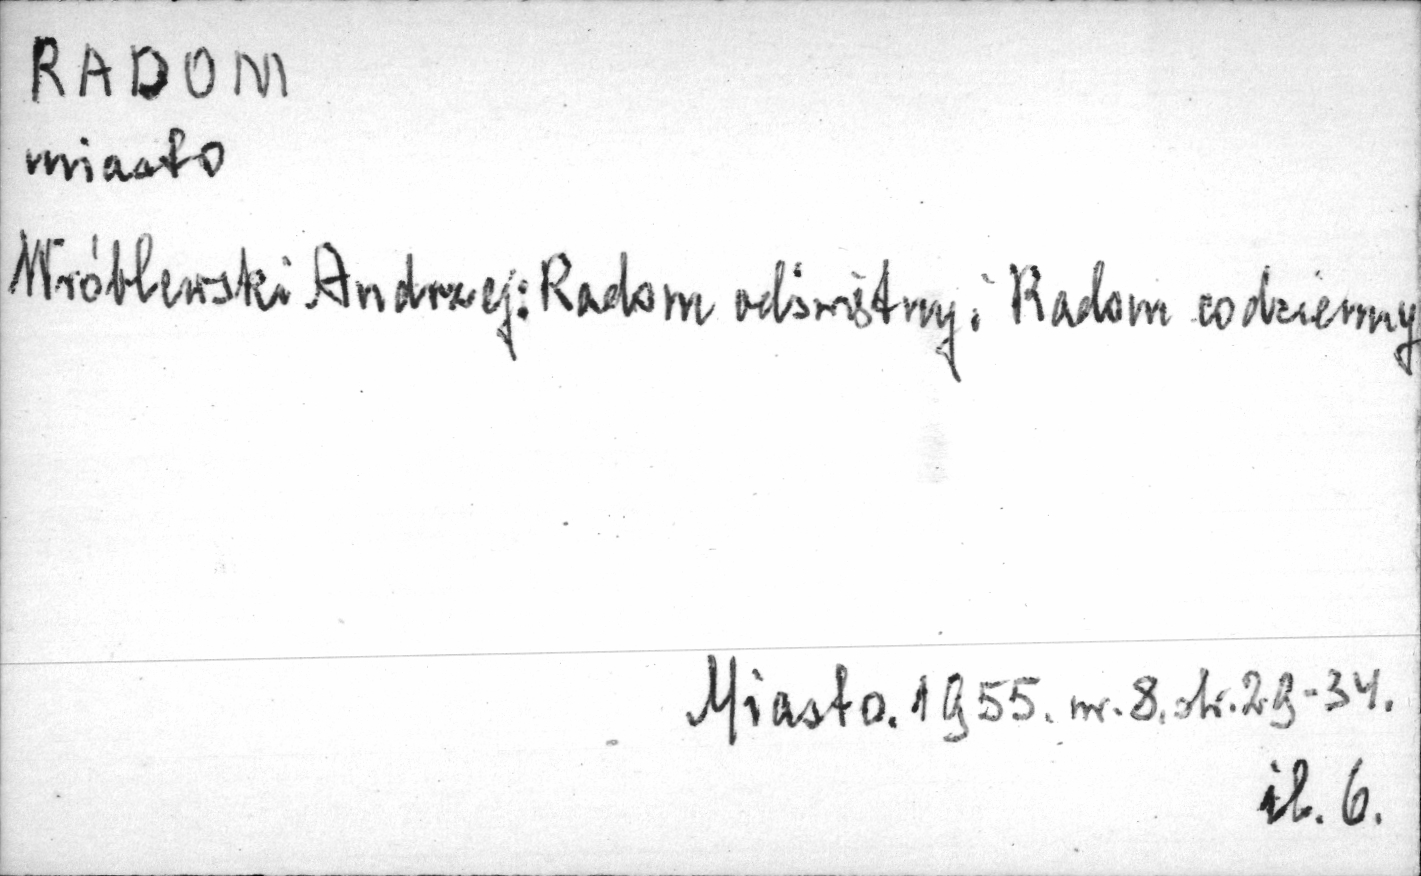 RADOM
miasto
Wróblewski Andrzej: Radom odświętny i Radom codzienny
Miasto. 1955. nr. 8. str. 29-34.
il. 6.